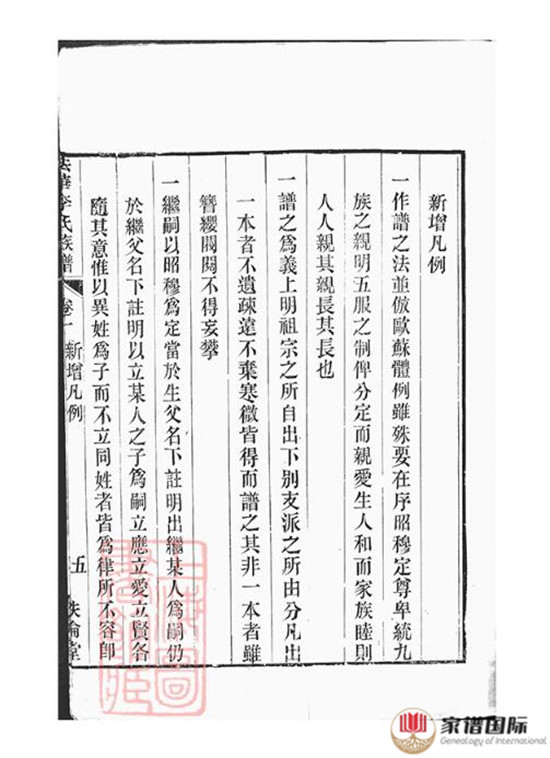 新增凡例
一作譜之法並倣歐蘇體例雖殊要在序昭穆定尊卑統九
族之親明五服之制俾分定而親愛生人和而家族睦則
人人親其親長其長也
一譜之爲義上明祖宗之所自出下別支派之所由分凡出
一本者不遺疎遠不棄寒微皆得而譜之其非一本者雖
簪纓閥閱不得妄攀
一繼嗣以昭穆爲定當於生父名下註明出繼某人爲嗣仍
於繼父名下註明以立某人之子爲嗣立應立愛立賢各
隨其意惟以異姓爲子而不立同姓者皆爲律所不容卽
法華李氏族譜
卷一
新增凡例
五
倫堂
家谱国际
Genealogy of International